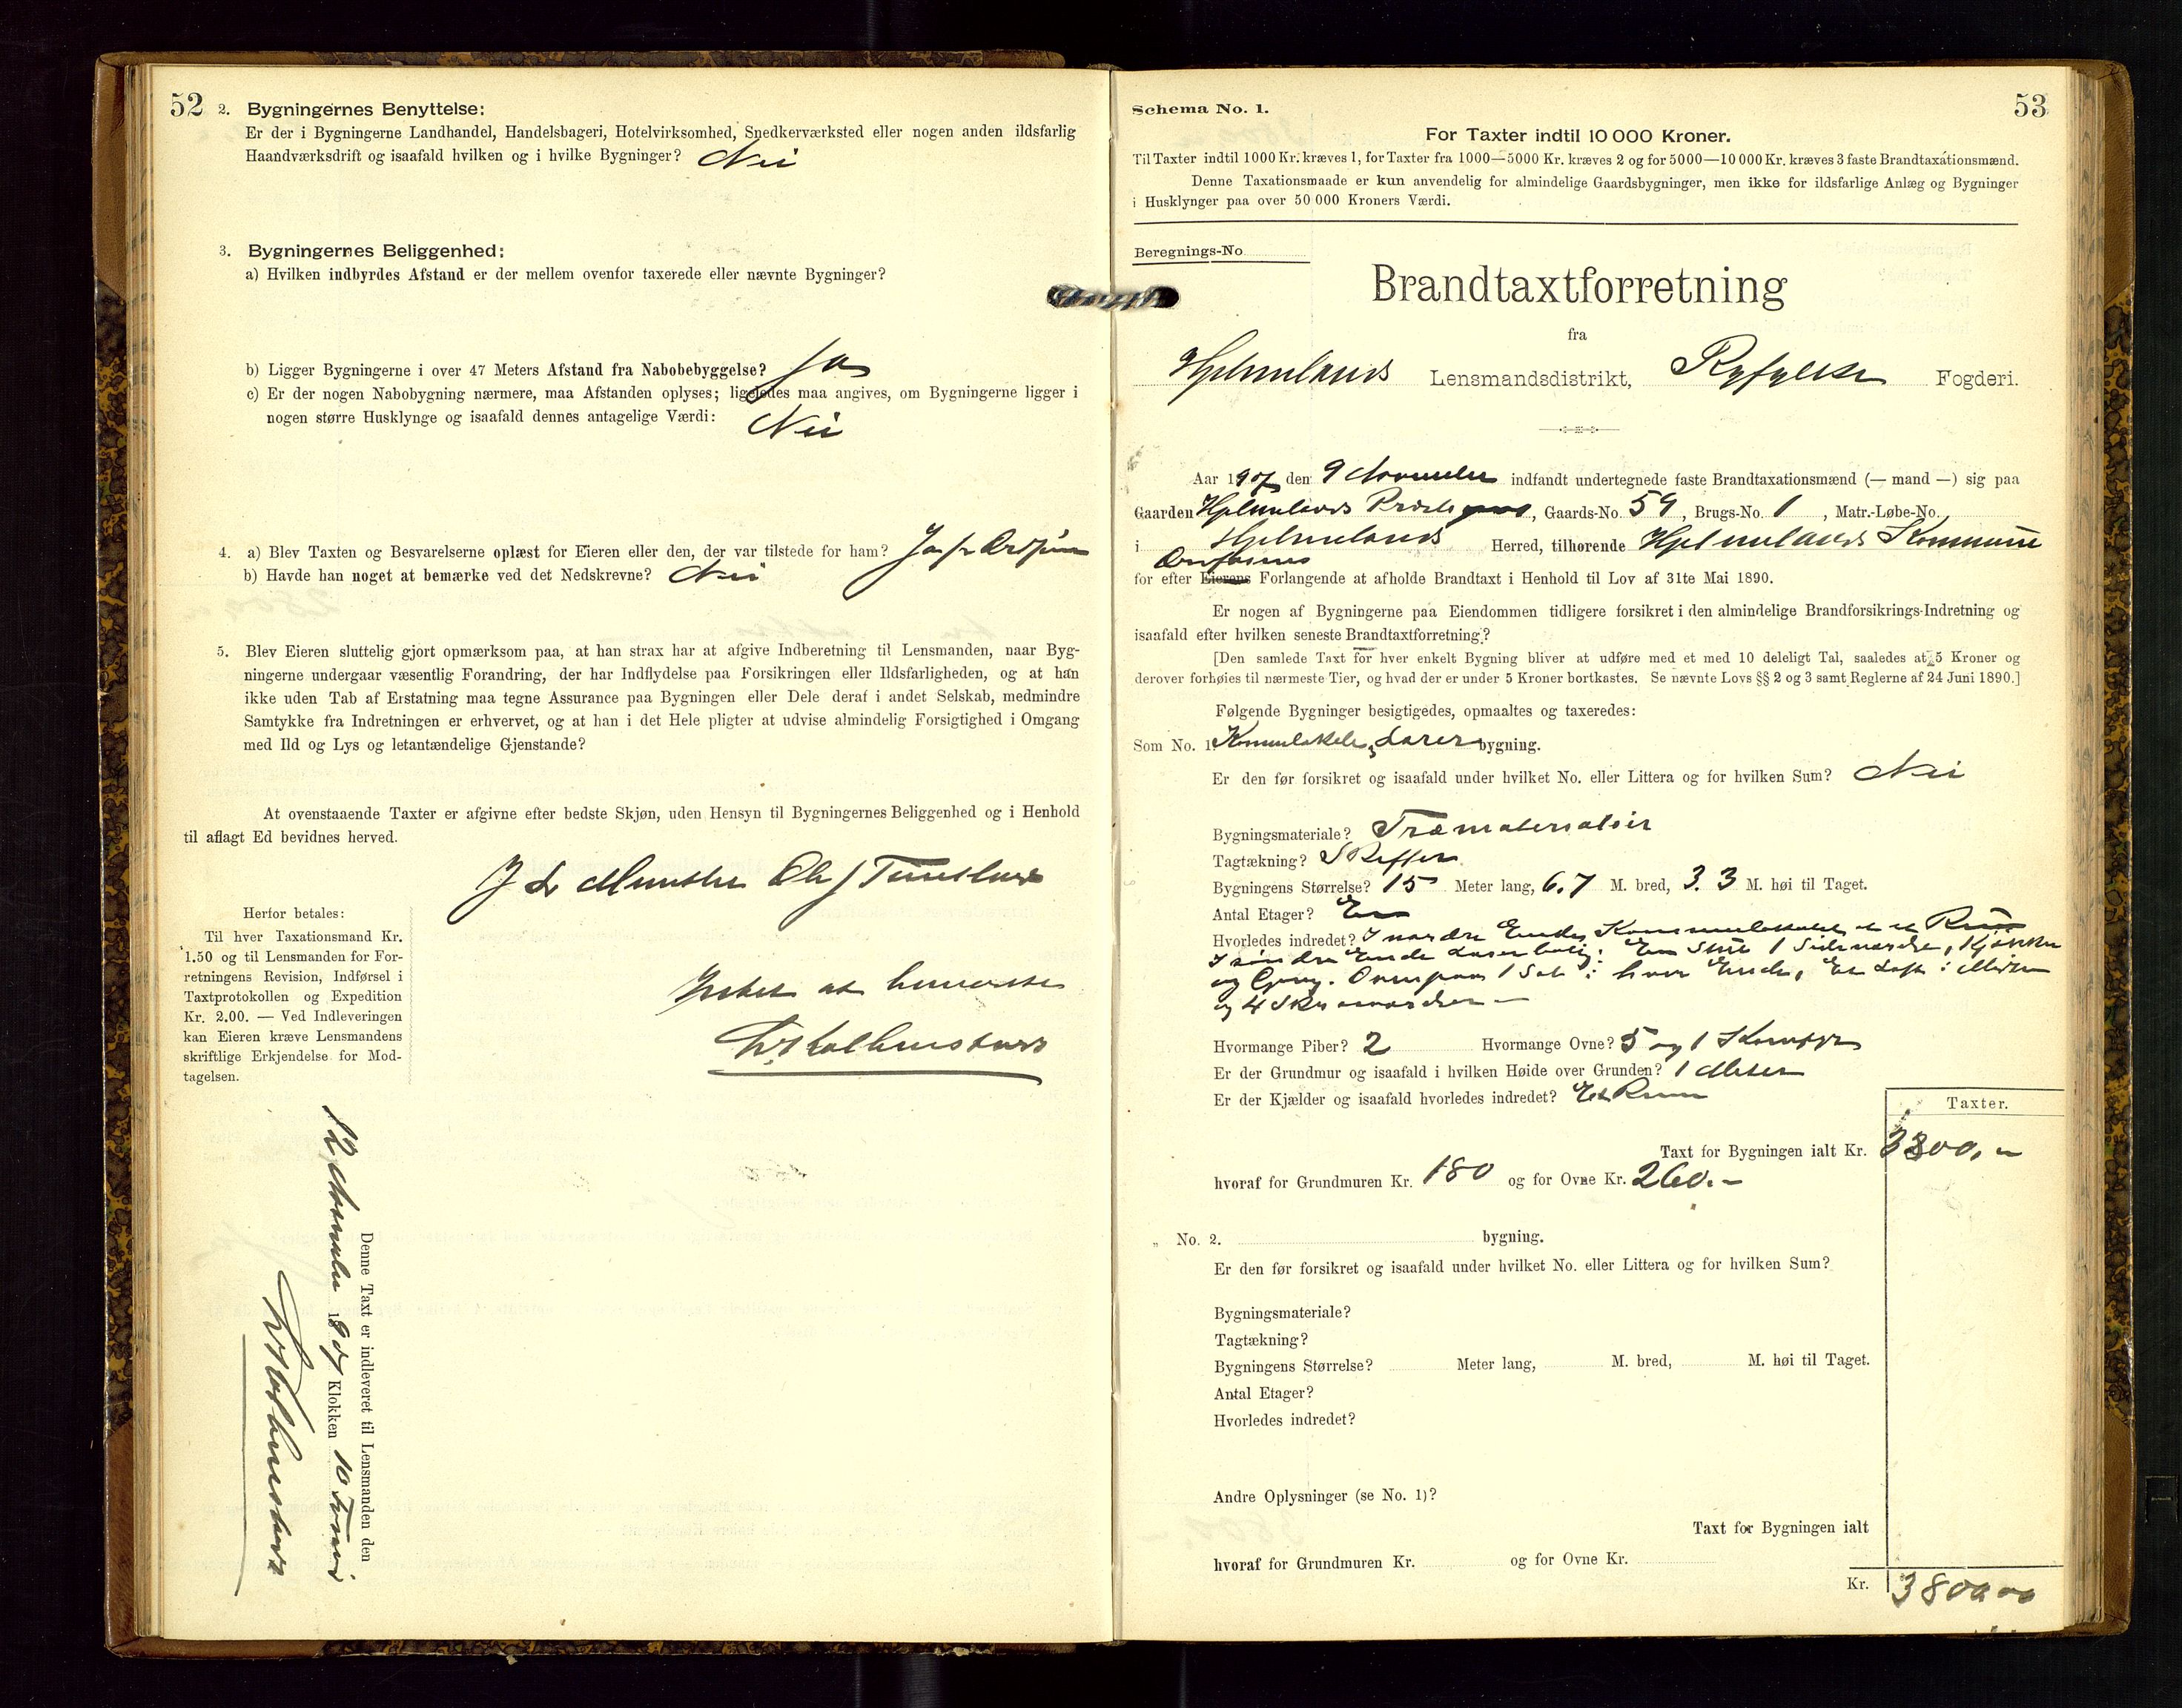 52
2. Bygningernes Benyttelse:
Er der i Bygningerne Landhandel, Handelsbageri, Hotelvirksomhed, Snedkerværksted eller nogen anden ildsfarlig
Haandværksdrift og isaafald hvilken og i hvilke Bygninger? Nei
3. Bygningernes Beliggenhed:
a) Hvilken indbyrdes Afstand er der mellem ovenfor taxerede eller nævnte Bygninger?
b) Ligger Bygningerne i over 47 Meters Afstand fra Nabobebyggelse? Ja
c) Er der nogen Nabobygning nærmere, maa Afstanden oplyses; ligeledes maa angives, om Bygningerne ligger i
nogen større Husklynge og isaafald dennes antagelige Værdi: Nei
4. a) Blev Taxten og Besvarelserne oplæst for Eieren eller den, der var tilstede for ham? Ja for Ordføren
b) Havde han noget at bemærke ved det Nedskrevne? Nei
5. Blev Eieren sluttelig gjort opmærksom paa, at han strax har at afgive Indberetning til Lensmanden, naar Byg-
ningerne undergaar væsentlig Forandring, der har Indflydelse paa Forsikringen eller Ildsfarligheden, og at han
ikke uden Tab af Erstatning maa tegne Assurance paa Bygningen eller Dele deraf i andet Selskab, medmindre
Samtykke fra Indretningen er erhvervet, og at han i det Hele pligter at udvise almindelig Forsigtighed i Omgang
med Ild og Lys og letantændelige Gjenstande?
At ovenstaaende Taxter er afgivne efter bedste Skjøn, uden Hensyn til Bygningernes Beliggenhed og i Henhold
til aflagt Ed bevidnes herved.
Herfor betales:
Til hver Taxationsmand Kr.
1.50 og til Lensmanden for For-
retningens Revision, Indførsel i
Taxtprotokollen og Expedition
Kr. 2.00. — Ved Indleveringen
kan Eieren kræve Lensmandens
skriftlige Erkjendelse for Mod-
tagelsen.
Intet at bemærke
Denne Taxt er indleveret til Lensmanden den
12 November 1907 Klokken 10 Form
53
Schema No. 1.
For Taxter indtil 10 000 Kroner.
Til Taxter indtil 1000 Kr. kræves 1, for Taxter fra 1000—5000 Kr. kræves 2 og for 5000—10 000 Kr. kræves 3 faste Brandtaxationsmænd.
Denne Taxationsmaade er kun anvendelig for almindelige Gaardsbygninger, men ikke for ildsfarlige Anlæg og Bygninger
i Husklynger paa over 50 000 Kroners Værdi.
Beregnings-No
Brandtaxtforretning
fra
Hjelmelands Lensmandsdistrikt, Ryfylke Fogderi.
Aar 1907 den 9 November indfandt undertegnede faste Brandtaxationsmænd (— mand —) sig paa
Gaarden Hjelmelands Prestegaard, Gaards-No. 59, Brugs-No. 1, Matr.-Løbe-No.
i Hjelmelands Herred, tilhørende Hjelmelands Kommune
Ordførers
for efter Eierens Forlangende at afholde Brandtaxt i Henhold til Lov af 31te Mai 1890.
Er nogen af Bygningerne paa Eiendommen tidligere forsikret i den almindelige Brandforsikrings-Indretning og
isaafald efter hvilken seneste Brandtaxtforretning?
[Den samlede Taxt for hver enkelt Bygning bliver at udføre med et med 10 deleligt Tal, saaledes at 5 Kroner og
derover forhøies til nærmeste Tier, og hvad der er under 5 Kroner bortkastes. Se nævnte Lovs §§ 2 og 3 samt Reglerne af 24 Juni 1890.]
Følgende Bygninger besigtigedes, opmaaltes og taxeredes:
Som No. 1 bygning.
Er den før forsikret og isaafald under hvilket No. eller Littera og for hvilken Sum? Nei
Bygningsmateriale? Træmaterialier
Tagtækning? Skiffer
Bygningens Størrelse? 15 Meter lang, 6.7 M. bred, 3.3 M. høi til Taget.
Antal Etager? En
Hvorledes indredet? I nordre Ende Kommunelokalet et Rum
I søndre Ende Lærerbolig: En Stue 1 Sideværelse, Kjøkken
og Gang. Ovenpaa 1 Sal i hver Ende, Et Loft i Midten
og 4
Hvormange Piber? 2 Hvormange Ovne? 5 og 1 Komfyr
Er der Grundmur og isaafald i hvilken Høide over Grunden? 1 Meter
Er der Kjælder og isaafald hvorledes indredet? Et Rum
Taxter.
Taxt for Bygningen ialt Kr. 3800,-
hvoraf for Grundmuren Kr. 180 og for Ovne Kr. 260.-
" No. 2. bygning.
Er den før forsikret og isaafald under hvilket No. eller Littera og for hvilken Sum?
Bygningsmateriale?
Tagtækning?
Bygningens Størrelse? Meter lang, M. bred, M. høi til Taget.
Antal Etager?
Hvorledes indredet?
Andre Oplysninger (se No. 1)?
Taxt for Bygningen ialt
hvoraf for Grundmuren Kr. og for Ovne Kr.
Kr. 3800 00